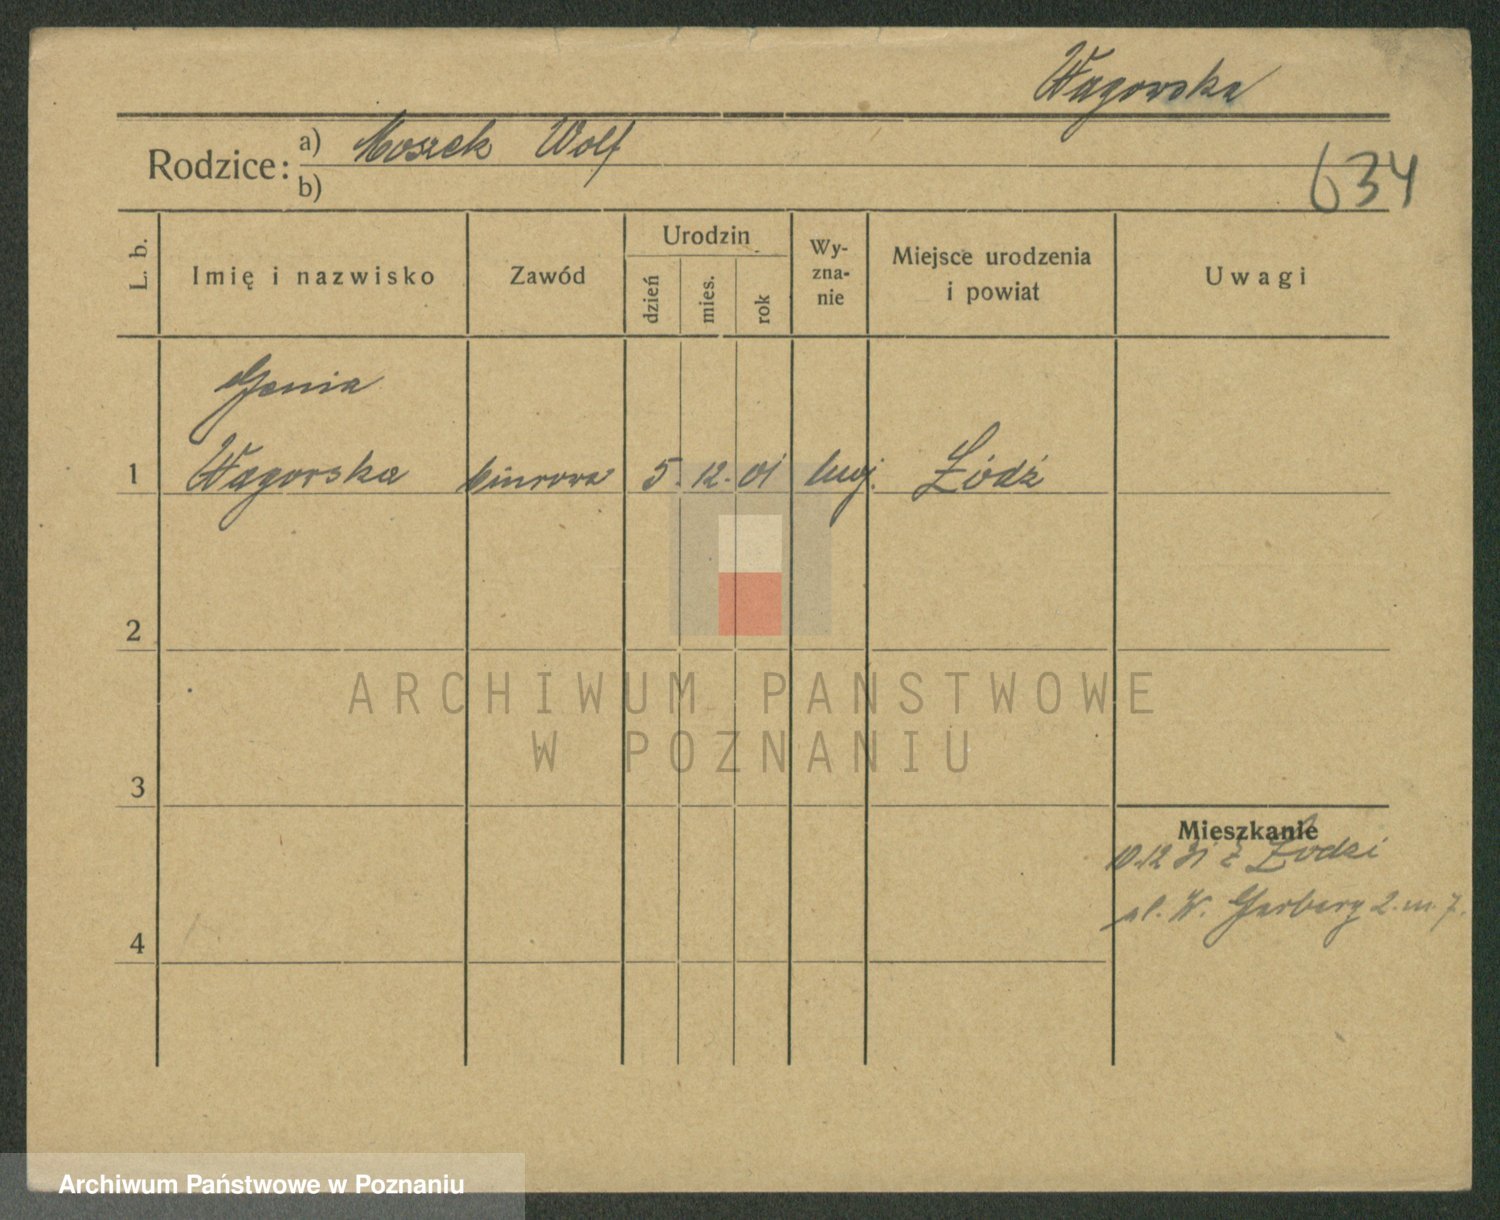 Wagorska
Rodzice:
a) Moszek Wolf
b)
634
L. b.
Imię i nazwisko
Zawód
Urodzin
dzień
mies.
rok
Wy-
zna-
nie
Miejsce urodzenia
i powiat
Uwagi
Genia
1 Wagorska biurowa 5. 12. 01 mojż. Łódź
2
3
4
Mieszkanie
10.12 31 z Łodzi
W. Garbary 2. m. 7.
ARCHIWUM PAŃSTWOWE
W POZNANIU
Archiwum Państwowe w Poznaniu